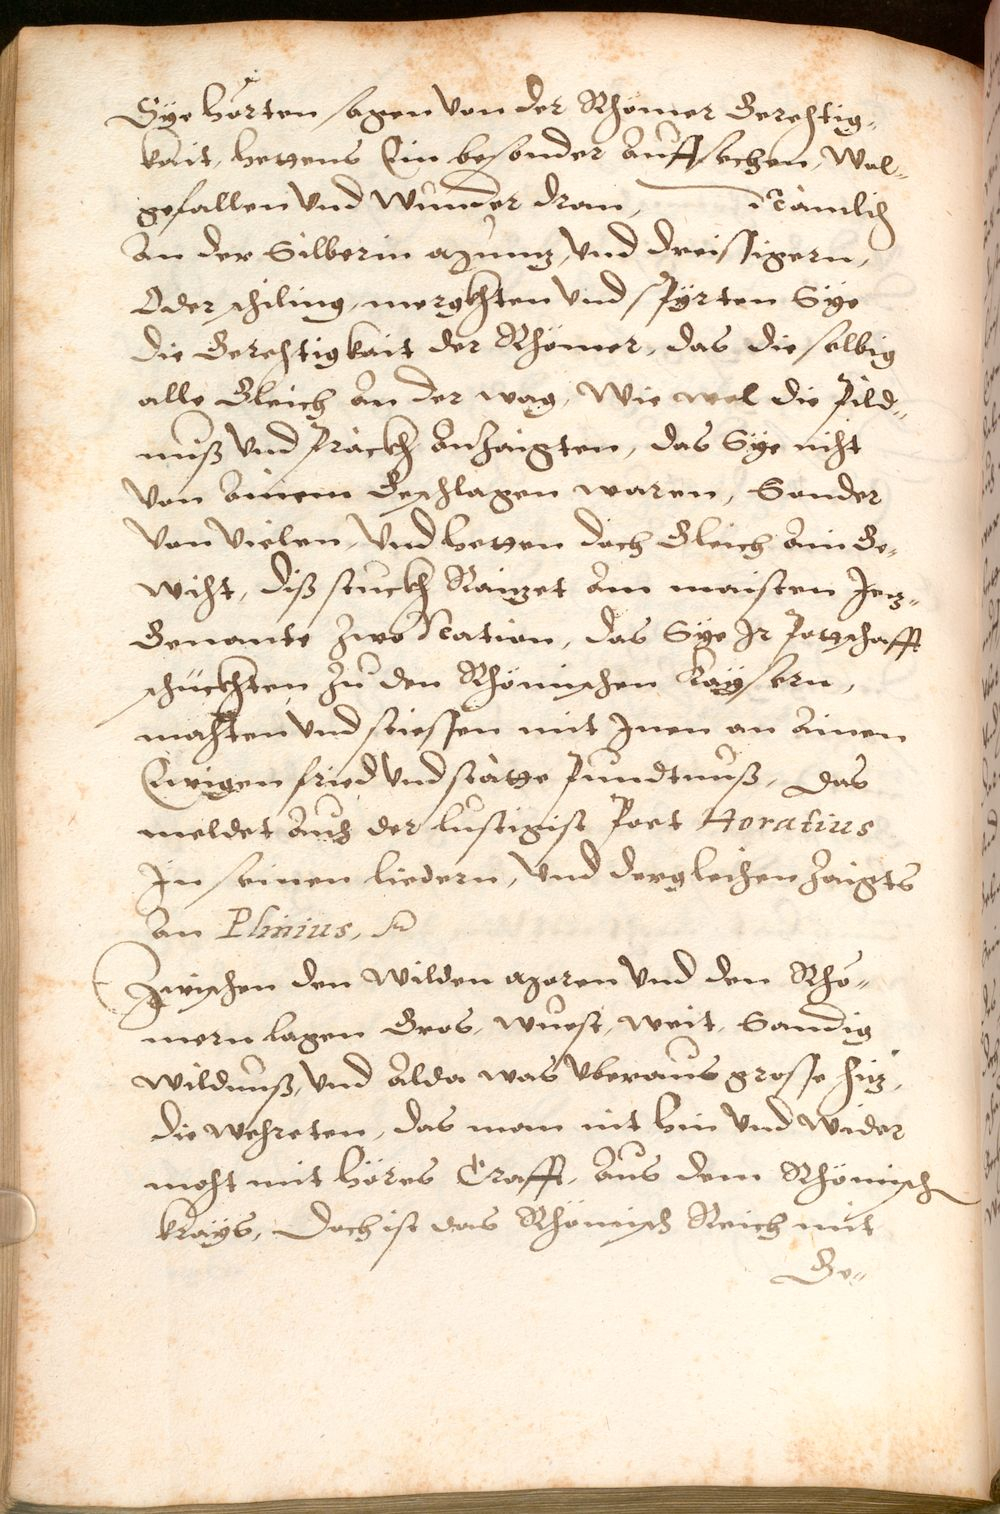 Sÿe horten sagen von der Rhömer Gerechtig-
kait, hettens Ein besonder auffsechen, Wol-
gefallen und wunder dran, Nämlich
an der Silberin müntz, und dreissigern,
Oder schiling, merckhten und spÿrten Sÿe
die Gerechtigkait der Rhömer, das dieselbig
alle Gleich an der wag, Wie wol die Pild-
nuß und präckh anzaigten, das Sÿe nicht
von ainem Geschlagen waren, Sonder
von vielen, und hetten doch Gleich ain Ge-
wicht, diß stuckh Raitzet am maisten Jetz-
Genante zwo Nation, das Sÿe Ir Pottschafft
schückhten zu den Rhömischen Kaÿsern,
machten und stiessen mit Inen an ainen
Ewigen fried und stätte Pundtnuß, das
meldet auch der lustigist Poet Horatius
In seinen liedern, und dergleichen zaigts
an Plinius,
Zwischen den wilden moren und den Rhö-
mern lagen Gros, wuest, weit, Sandig
wildnuß, und alda was uberaus grosse hitz,
die wehreten, das man nit hin und wider
mocht mit höres Crafft, aus dem Rhömisch
kraÿs, Doch ist das Rhömisch Reich mit
Ge-